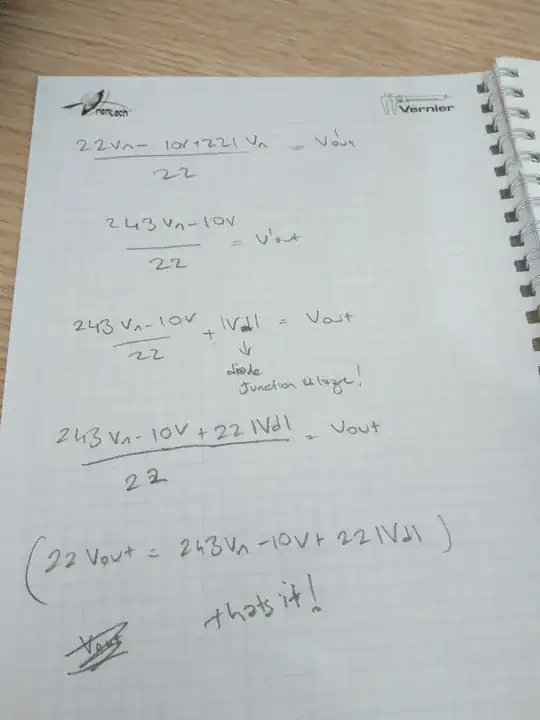 Vernier
22Vn - 10V + 221Vn / 22 = V'out
243Vn - 10V / 22 = V'out
243Vn - 10V / 22 + |Vd| = Vout
↓
diode
Junction
243Vn - 10V + 22|Vd| / 22 = Vout
(22Vout = 243Vn - 10V + 22|Vd|)
thats it!